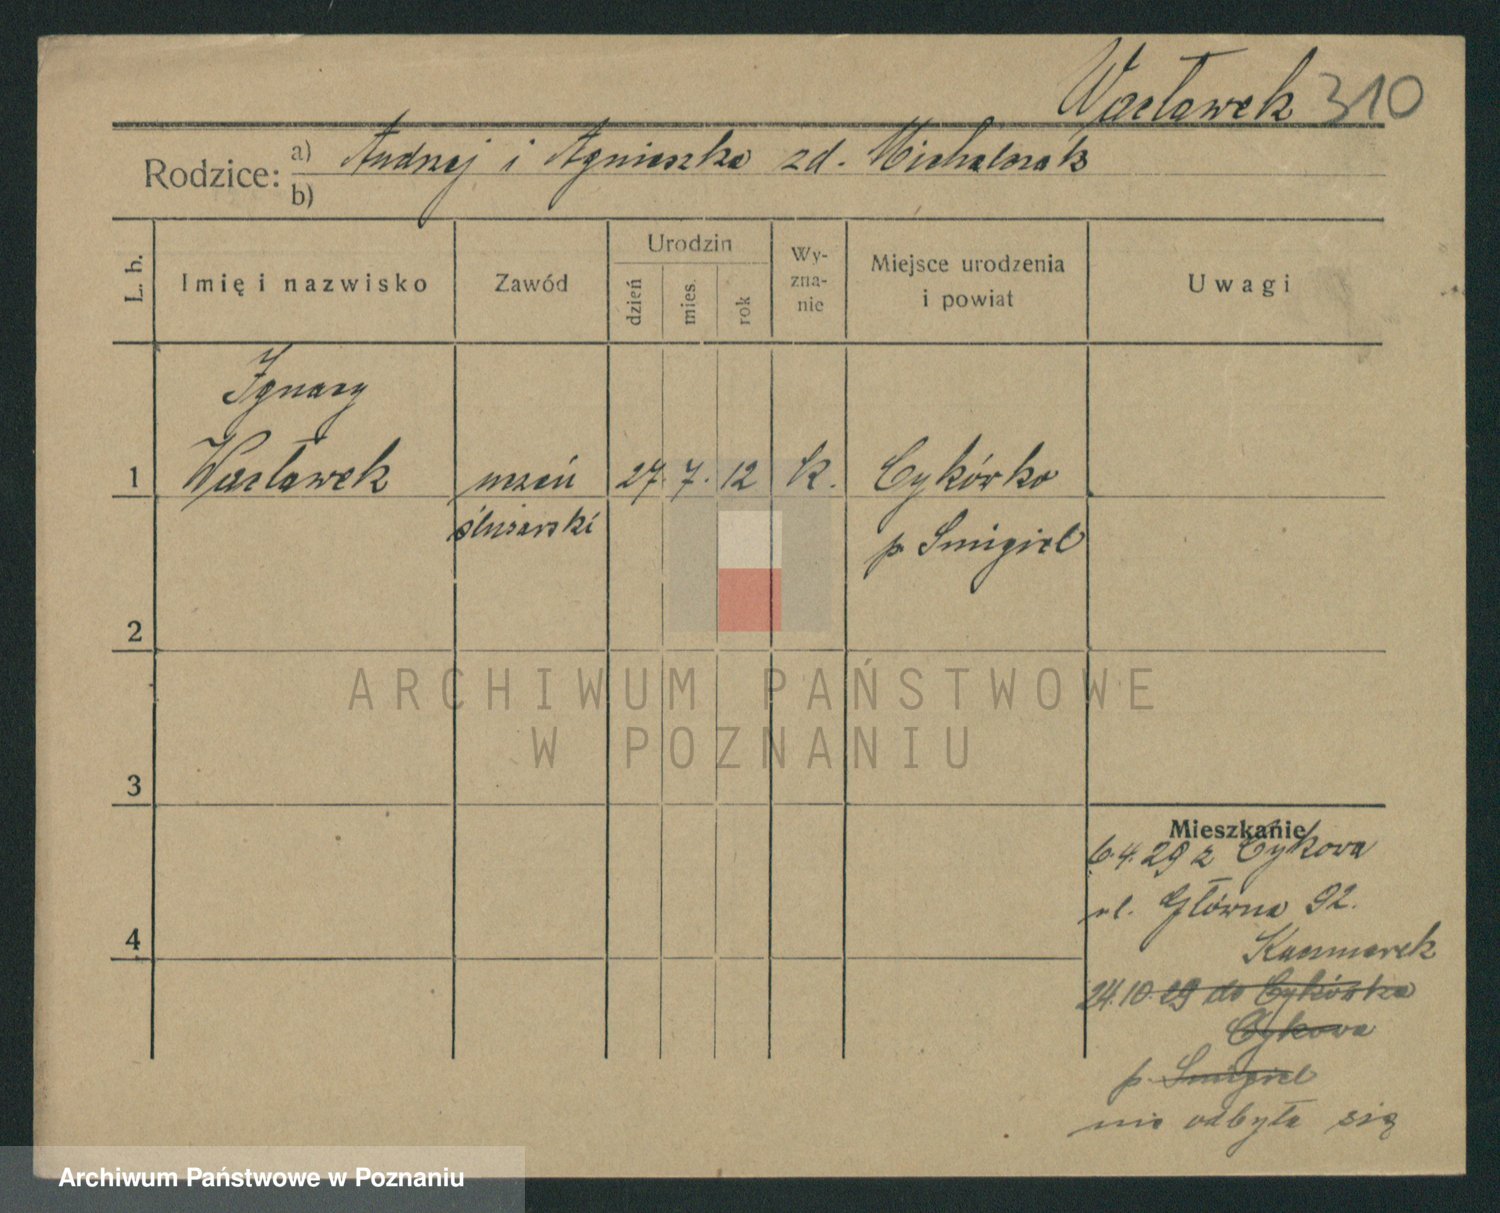 Wacławek 310
Rodzice: a) Andrzej i Agnieszka zd. Michalczak
b)
L. b.
Imię i nazwisko
Zawód
Urodzin
dzień
mies.
rok
Wy-
zna-
nie
Miejsce urodzenia
i powiat
Uwagi
Ignacy
1 Wacławek uczeń 27. 7. 12 k. Cykówko
ślusarski p. Smigiel
2
ARCHIWUM PAŃSTWOWE
W POZNANIU
3
Mieszkanie
6.4.29 z Cykowa
ul. Główna 92.
4
Kaczmarek
24.10.29 do Cykówka
Cykowa
p. Smigiel
nie odbyła się
Archiwum Państwowe w Poznaniu